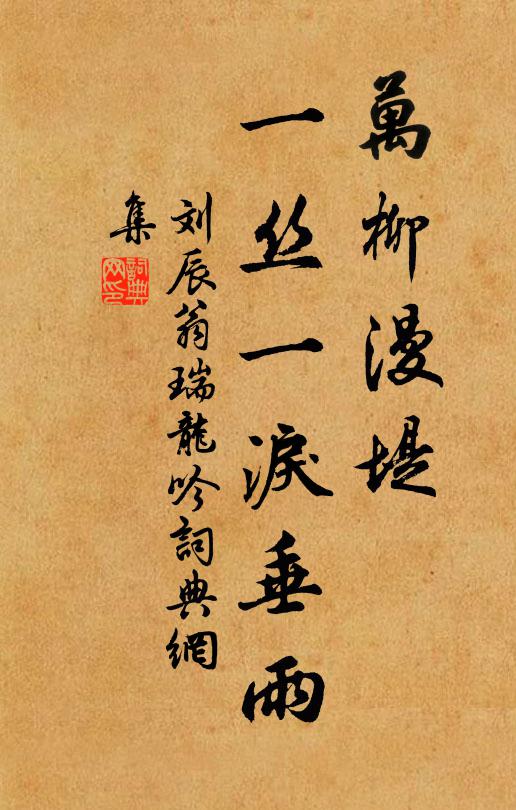 萬柳漫堤
一丝一淚垂雨
刘辰翁瑞龍吟詞典網
集
詞典网印